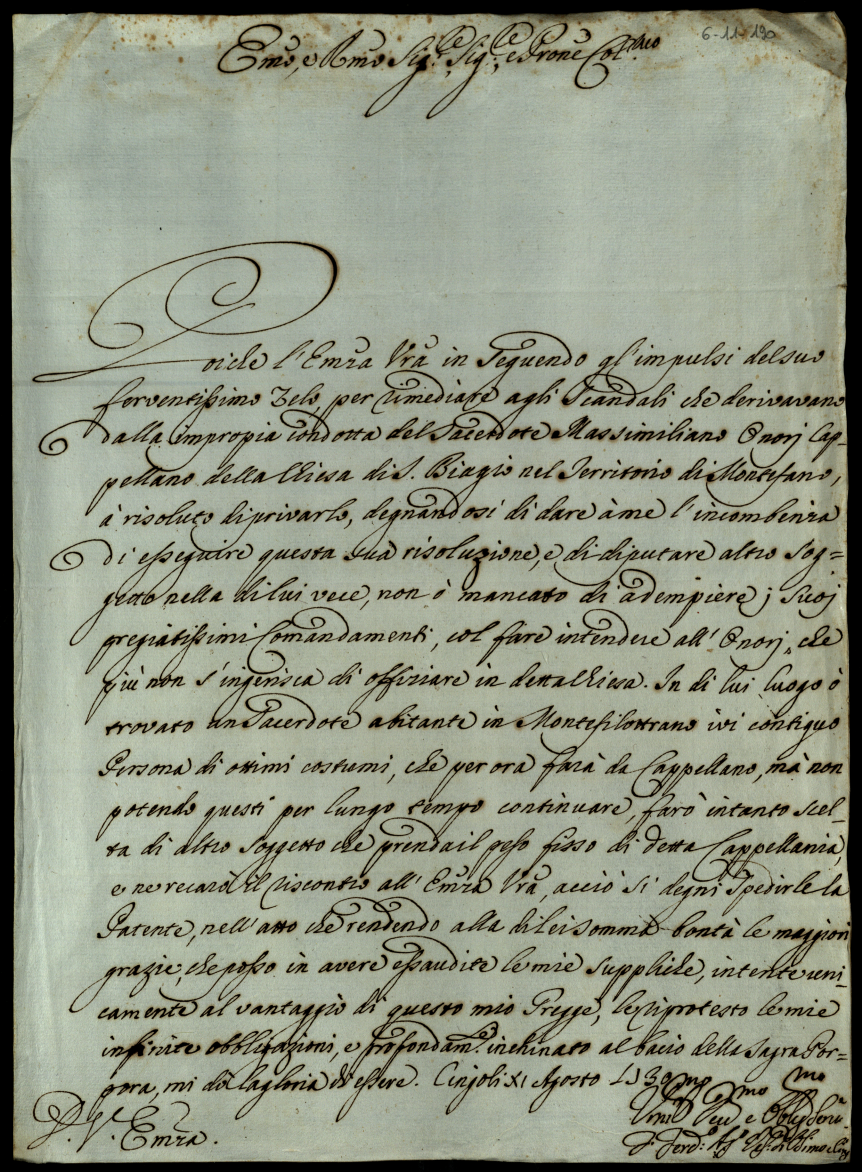 Emo, e Rmo Sig.re Sig.re e Prone Col.mo
6-11-190
Poiche l'Emza Vrã in seguendo gl'impulsi del suo
ferventissimo Zelo, per rimediare agli Scandali che derivavano
dalla impropia condotta del Sacerdote Massimiliano Onorj Cap-
pellano della Chiesa di S. Biagio nel Territorio di Montefano,
à risoluto di privarlo, degnandosi di dare à me l'incombenza
di esseguire questa sua risoluzione, e di diputare altro Sog=
getto nella di lui vece, non ò mancato di adempiere j Suoj
pregiatissimi Comandamenti, col fare intendere all'Onorj, che
più non s'ingerisca di offiziare in detta Chiesa. In di lui luogo ò
trovato un Sacerdote abitante in Montefilottrano ivi contiguo
Persona di ottimi costumi, che per ora farà da Cappellano, mà non
potendo questi per lungo tempo continuare, farò intanto scel-
ta di altro Soggetto che prenda il peso fisso di detta Cappellania,
e ne recarò il riscontro all'Emza Vrã, acciò si degni spedirle la
Patente, nell'atto che rendendo alla di lei somma bontà le maggiori
grazie, che posso in avere essaudite le mie suppliche, intente uni-
camente al vantaggio di questo mio Gregge, le riprotesto le mie
infinite obbligazioni, e profondam.e inchinato al bacio della Sagra Por-
pora, mi dò la gloria di essere. Cingoli XI Agosto 1730
D. V. Emza.
Umil.mo Dev.mo e Obl.mo Serv.